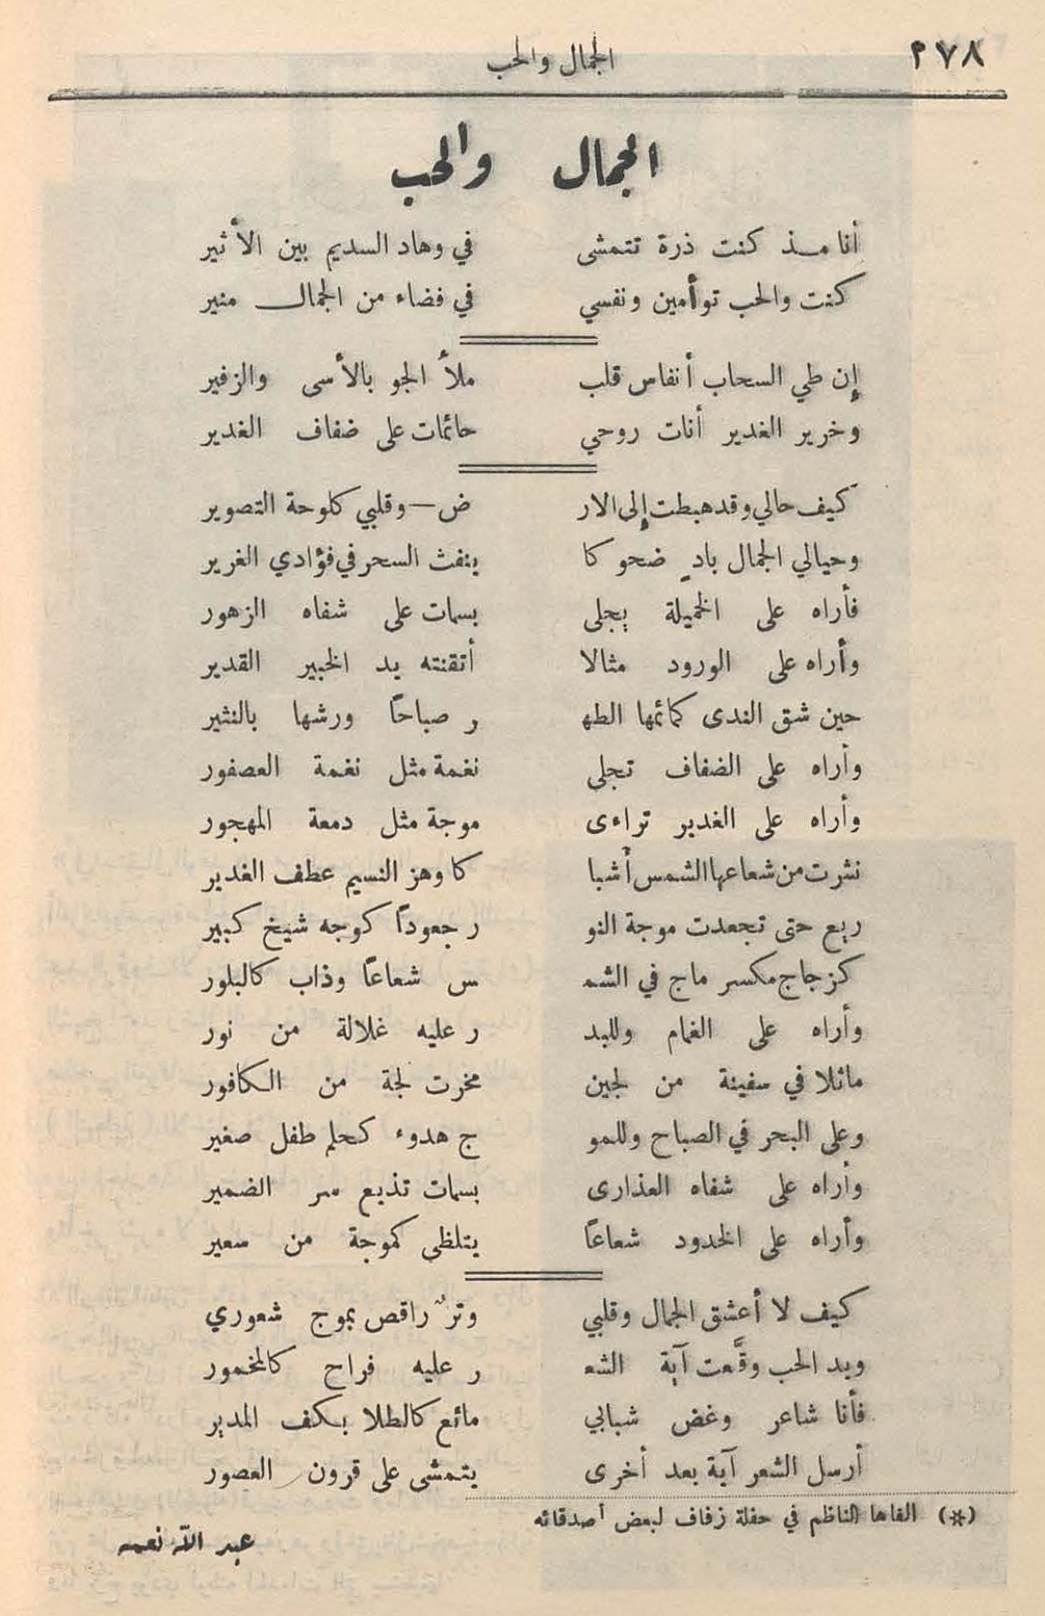 ٢٧٨
الجمال والحب
الجمال والحب
أنا مـذ كنت ذرة تتمشى في وهاد السديم بين الأثير
كنت والحب توأمين ونفسي في فضاء من الجمال منير
إن طي السحاب أنفاس قلب ملأ الجو بالأسى والزفير
وخرير الغدير أنات روحي حائمات على ضفاف الغدير
كيف حالي وقد هبطت إلى الار ض — وقلبي كلوحة التصوير
وحيالي الجمال بادٍ ضحوكا ينفث السحر في فؤادي الغرير
فأراه على الخميلة يجلى بسمات على شفاه الزهور
وأراه على الورود مثالا أتقنته يد الخبير القدير
حين شق الندى كمائمها الطه ر صباحاً ورشها بالنثير
وأراه على الضفاف تجلى نغمة مثل نغمة العصفور
وأراه على الغدير تراءى موجة مثل دمعة المهجور
نثرت من شعاعها الشمس أشبا كا وهز النسيم عطف الغدير
ريع حتى تجعدت موجة النو ر جعوداً كوجه شيخ كبير
كزجاج مكسر ماج في الشمـ س شعاعاً وذاب كالبلور
وأراه على الغمام وللبد ر عليه غلالة من نور
ماثلا في سفينة من لجين مخرت لجة من الكافور
وعلى البحر في الصباح وللمو ج هدوء كحلم طفل صغير
وأراه على شفاه العذارى بسمات تذيع سر الضمير
وأراه على الخدود شعاعاً يتلظى كموجة من سعير
كيف لا أعشق الجمال وقلبي وترٌ راقص بموج شعوري
ويد الحب وقَّعت آية الشعـ ر عليه فراح كالمخمور
فأنا شاعر وغض شبابي مائع كالطلا بكف المدير
أرسل الشعر آية بعد أخرى يتمشى على قرون العصور
(*) القاها الناظم في حفلة زفاف لبعض أصدقائه
عبد الله نعمه